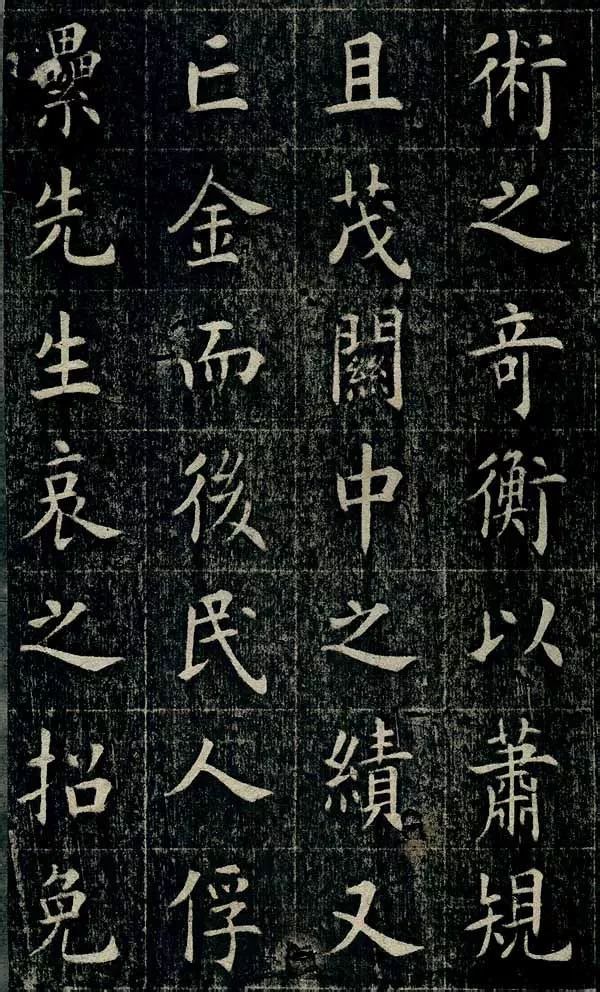 術之奇衡以蕭規
且茂關中之績又
亡金而後民人俘
纍先生哀之招免